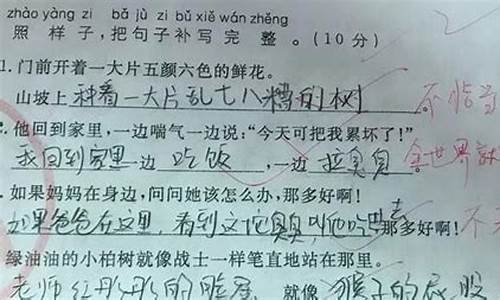 zhào yàng zi bǎ jù zi bǔ xiě wán zhěng
照 样 子，把 句 子 补 写 完 整 。（10 分）
1. 门前开着一大片五颜六色的鲜花。
山坡上种着一大片乱七八糟的树 不恰当
他回到家里，一边喘气一边说：“今天可把我累坏了！”
我回到家里一边吃饭，一边拉臭臭。
. 如果妈妈在身边，问问她该怎么办，那多好啊！
如果爸爸在这里，看到这坨臭臭叫他吃去那多好啊！
绿油油的小柏树就像战士一样笔直地站在那里。
老师红彤彤的脸 就像猴子的屁股